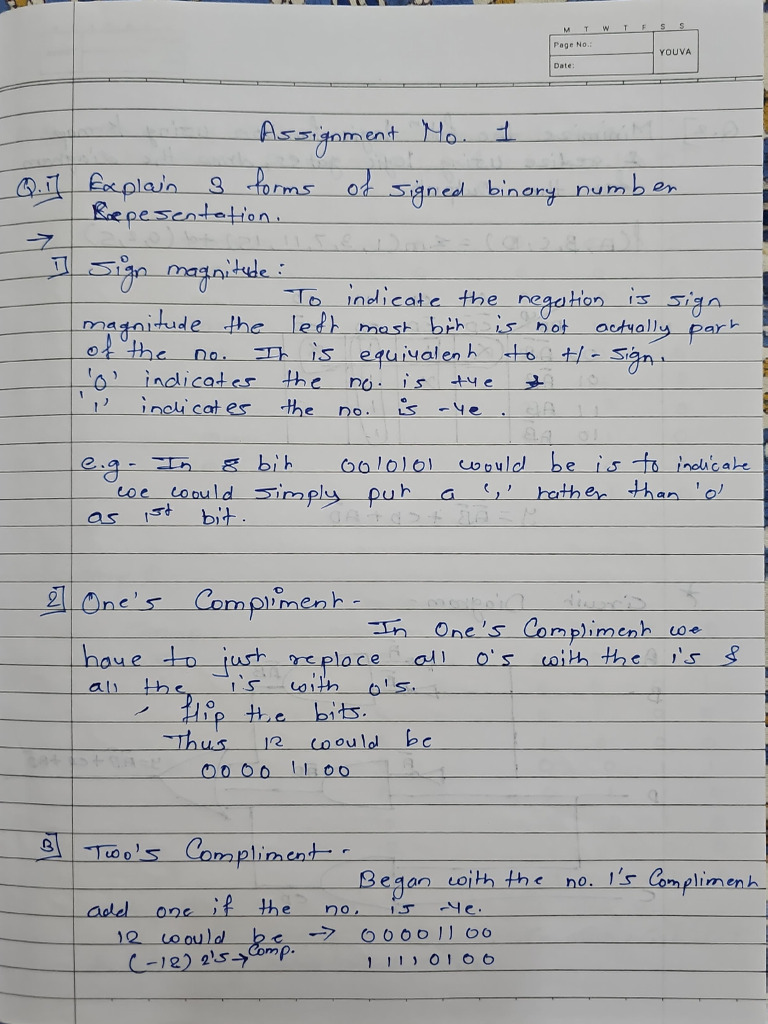 M T W T F S S
Page No.:
YOUVA
Date:
Assignment No. 1
Q.1] Explain 3 forms of signed binary number
Repesentation.
→
1] Sign magnitude:
To indicate the negation is sign
magnitude the left most bit is not actually part
of the no. It is equivalent to +/- sign.
'0' indicates the no. is +ve &
'1' indicates the no. is -ve.
e.g - In 8 bit 0010101 would be is to indicate
we would simply put a '1' rather than '0'
as 1st bit.
2] One's Compliment -
In One's Compliment we
have to just replace all 0's with the 1's &
all the 1's with 0's.
flip the bits.
Thus 12 would be
0000 1100
3] Two's Compliment -
Began with the no. 1's Compliment
add one if the no. is -ve.
12 would be → 00001100
(-12) 2's → Comp. 11110100